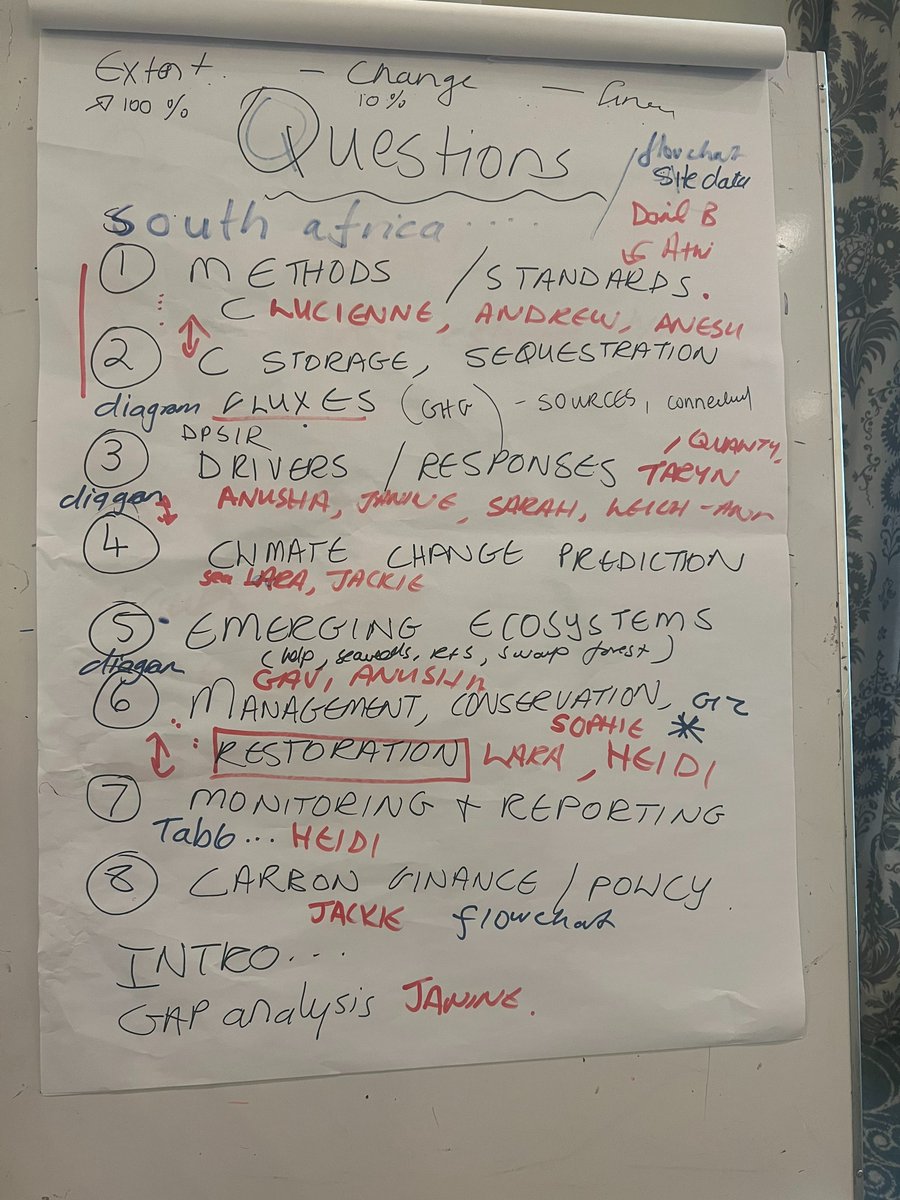 Extent - Change
↗ 100 % 10 %
Questions
flowchat
Site data
David B
South africa .....
① METHODS / STANDARDS.
C LUCIENNE, ANDREW, ANESU
② C STORAGE, SEQUESTRATION
diagram FLUXES (GHG) - SOURCES,
DPSIR
③ DRIVERS / RESPONSES TARYN
ANUSHA, JANINE, SARAH,
④ CLIMATE CHANGE PREDICTION
LARA, JACKIE
⑤ EMERGING ECOSYSTEMS
(kelp, seaweeds, swamp forest)
GAV, ANUSHA
⑥ MANAGEMENT, CONSERVATION,
SOPHIE *
RESTORATION LARA, HEIDI
⑦ MONITORING + REPORTING
HEIDI
⑧ CARBON FINANCE / POLICY
JACKIE flowchat
INTRO...
GAP analysis JANINE.